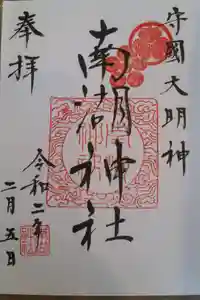 守國大明神
奉拝
南湖神社
令和二年
二月五日